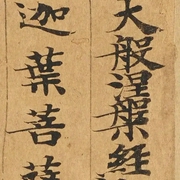 大般涅槃経
迦葉菩薩